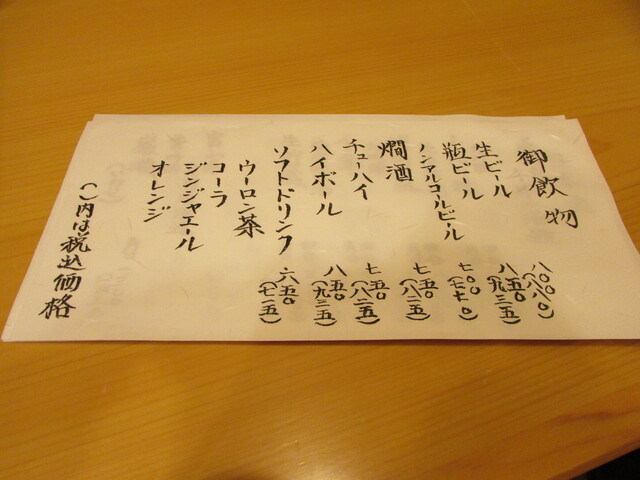 御飲物
生ビール 八〇〇(八八〇)
瓶ビール 八五〇(九三五)
ノンアルコールビール 七〇〇(七七〇)
燗酒 七五〇(八二五)
チューハイ 七五〇(八二五)
ハイボール 八五〇(九三五)
ソフトドリンク 六五〇(七一五)
ウーロン茶
コーラ
ジンジャエール
オレンジ
()内は税込価格